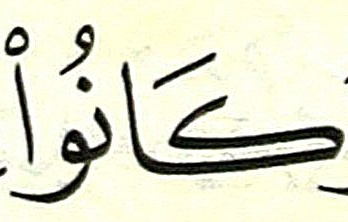 كَانُواْ